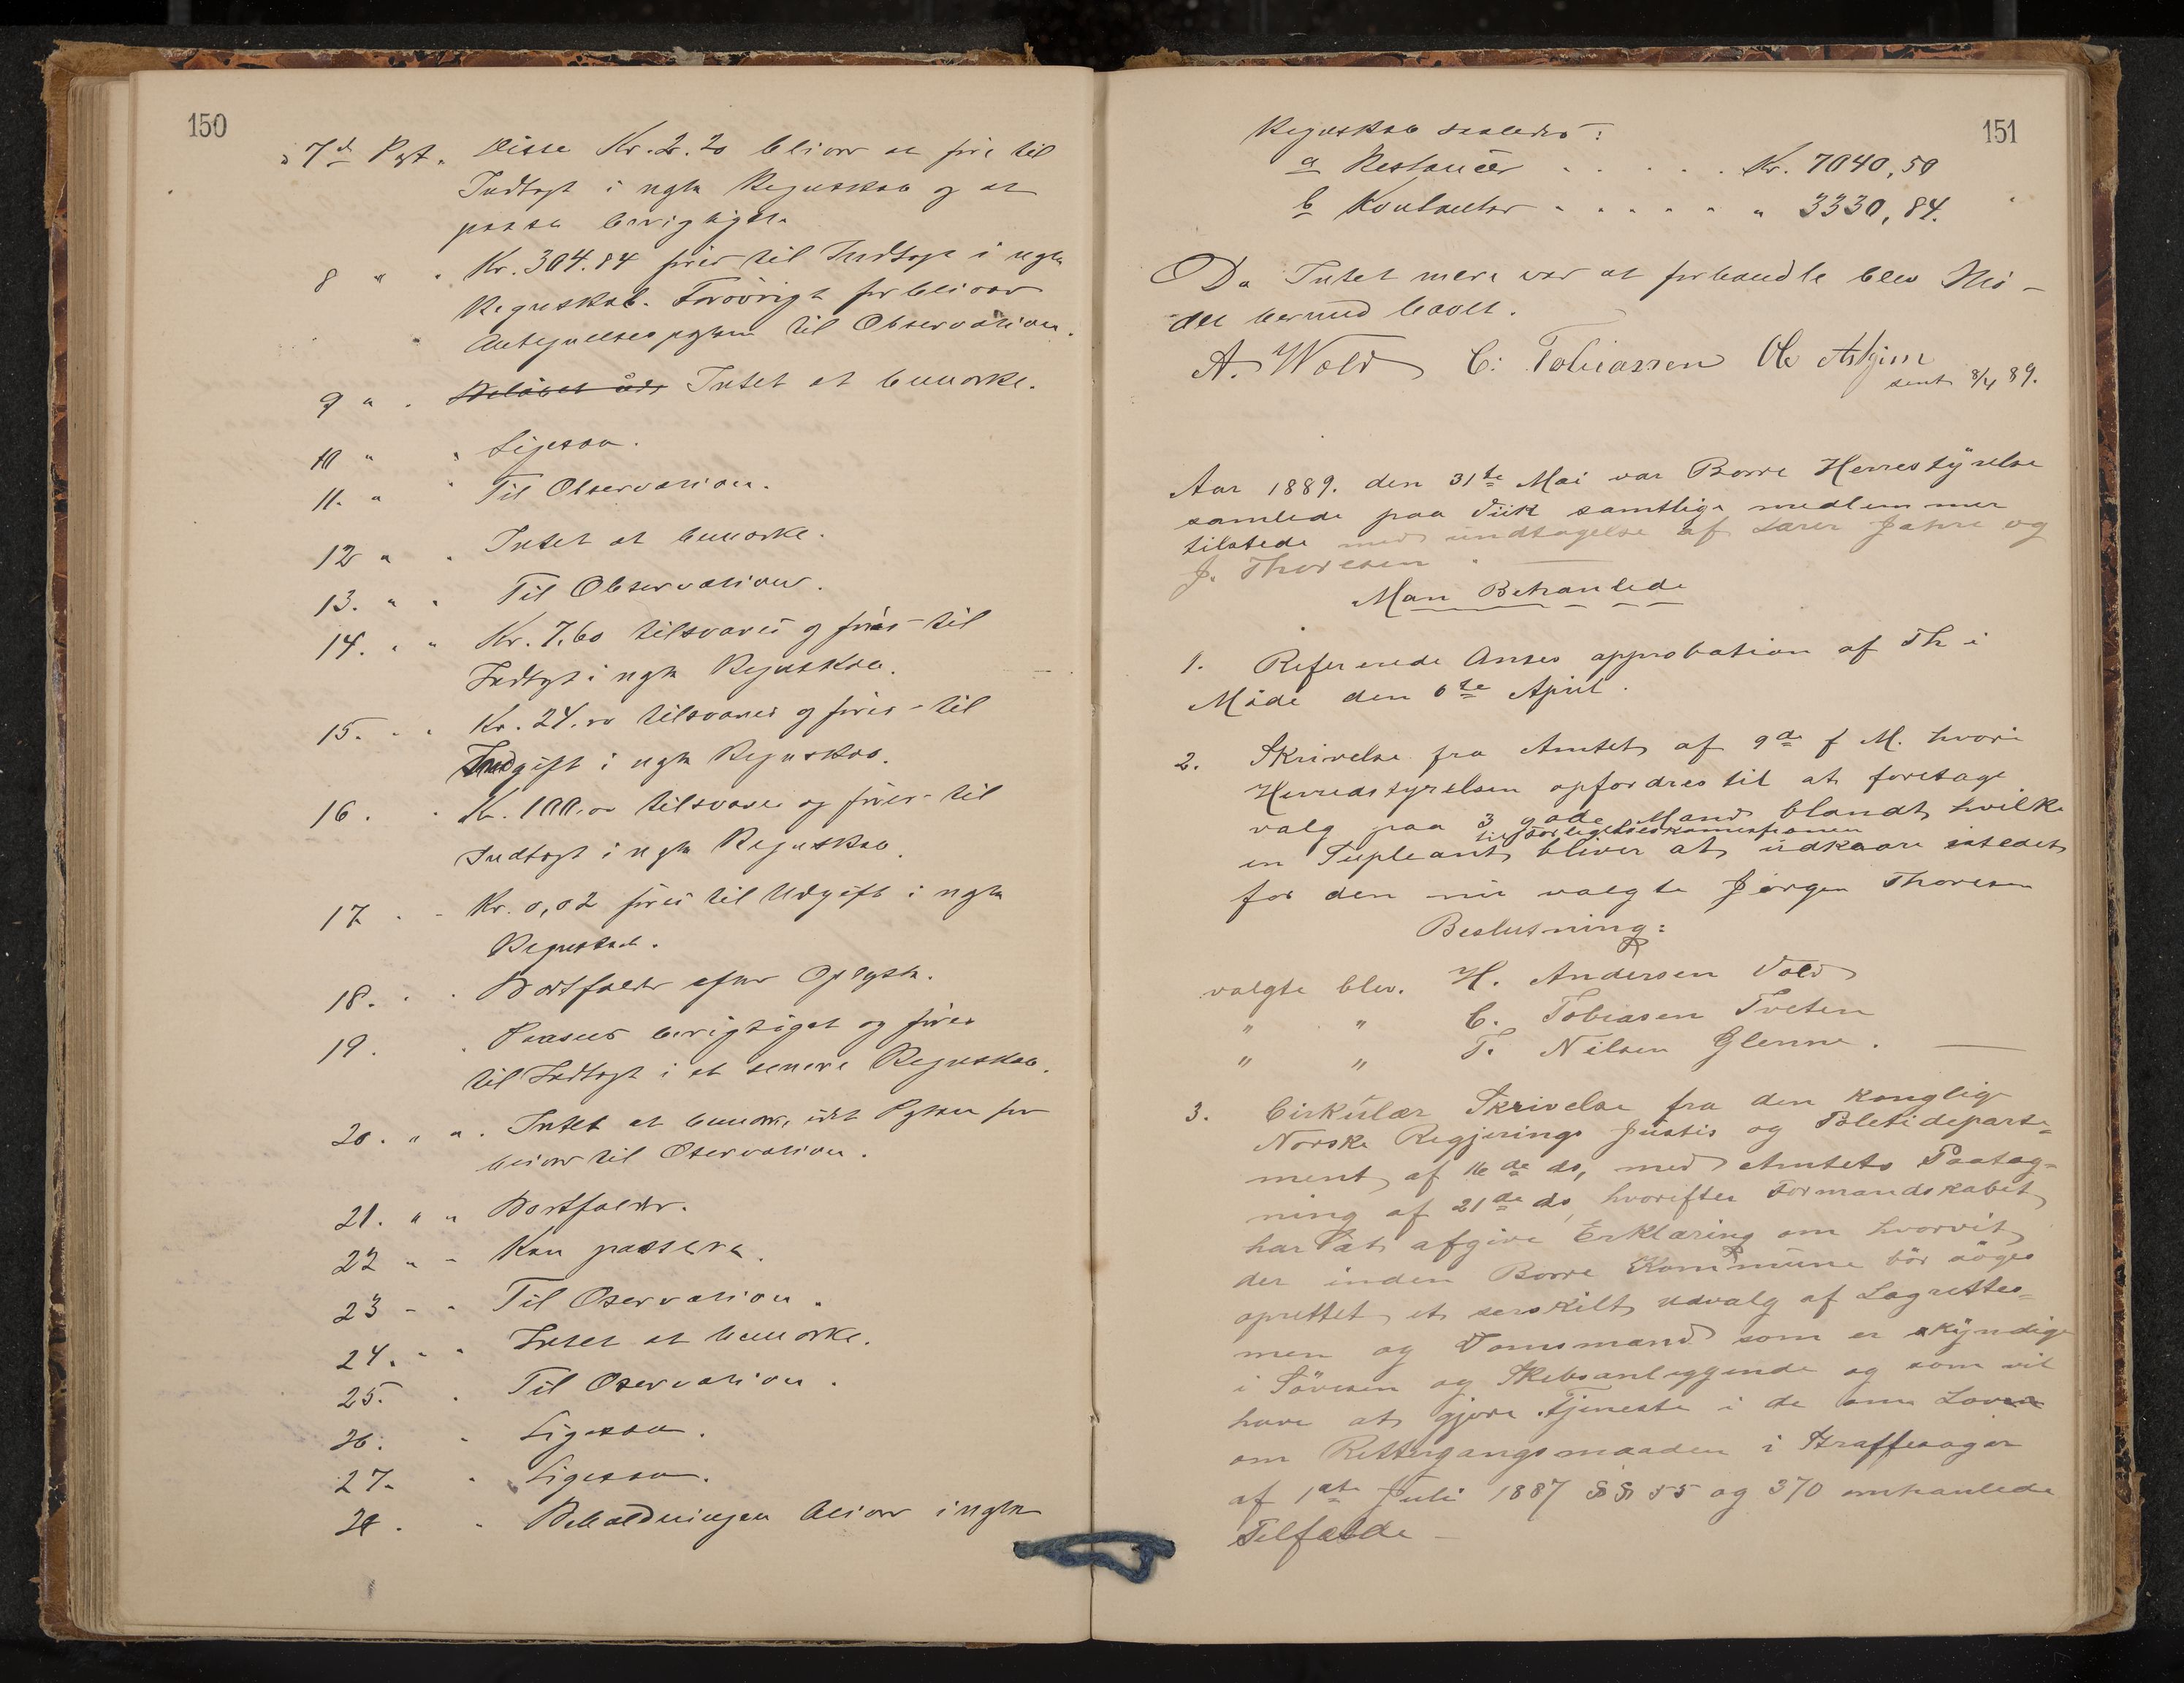 150
" 7d Pst. Disse Kr. 2.20 bliver at føre til
Indtægt i næste Regnskab og at
passere berigtiget.
8 " " Kr. 304.84 føres til Indtægt i næste
Regnskab. Forøvrigt forbliver
Antegnelsesposten til Observation.
9 " . Beløbet Intet at bemærke.
10 " " Ligesaa.
11. " " Til Observation.
12 " . Intet at bemærke.
13. " " Til Observation.
14. " " Kr. 7.60 tilsvares og føres til
Indtægt i næste Regnskab.
15. " " Kr. 24.00 tilsvares og føres til
Indgift i næste Regnskab.
16. " Kr. 100.00 tilsvares og føres til
Indtægt i næste Regnskab.
17 . - Kr. 0,02 føres til Udgift i næste
Regnskab.
18. . . Bortfalder efter Oplyste.
19. . Passeres berigtiget og føres
til Indtægt i et senere Regnskab.
20. " " . Intet at bemærke, idet Posten for
bliver til Oservation.
21. " " Bortfalder.
22 " - Kan passere.
23 - - Til Oservation.
24. - - Intet at bemærke.
25. . Til Oservation.
26. " Ligesaa.
27. " Ligesaa.
28. " Beholdningen bliver i næste
151
Regnskab saaledes:
a Restancer . . . . . Kr. 7040,50
b Kontanter . . . . . " 3330,84.
Da Intet mere var at forhandle blev Mö-
det hermed hævet.
A. Wold C. Tobiassen Ole Askjem
sent 8/4 89.
Aar 1889. den 31te Mai var Borre Herrestÿrelse
samlede paa Viik samtlige medlemmer
tilstede med undtagelse af Lærer Jahre og
J. Thoresen. —
Man Behanlede
1. Refererede Amtes approbation af Th i
Möde den 6te April.
2. Skrivelse fra Amtet af 9de f M. hvori
Herredstyrelsen opfordres til at foretage
valg paa 3 gode Mænd blandt hvilke
til Forligelseskomissionen
en Supleant bliver at udkaare istedet
for den nu valgte Jörgen Thoresen
Beslutning:
valgte blev. H. Andersen Vold
" " C. Tobiasen Tveten
" " T. Nilsen Glenne. —
3. Cirkulær Skrivelse fra den konglige
Norske Regjerings Justis og Poletideparte=
ment af 16de ds, med Amtets Paateg=
ning af 21de ds, hvorefter Formandskabet
har at afgive Erklæring om hvorvit
der inden Borre Kommune bör söges
oprettet et særskilt udvalg af Lagrettes=
men og Domsmænd som er kÿndige
i Sövesen og Skibsanliggende og som vil
have at gjöre Tjeneste i de om Loven
om Rettergangsmaaden i Straffesager
af 1ste Juli 1887 §§ 55 og 370 omhanlede
Tilfælde —